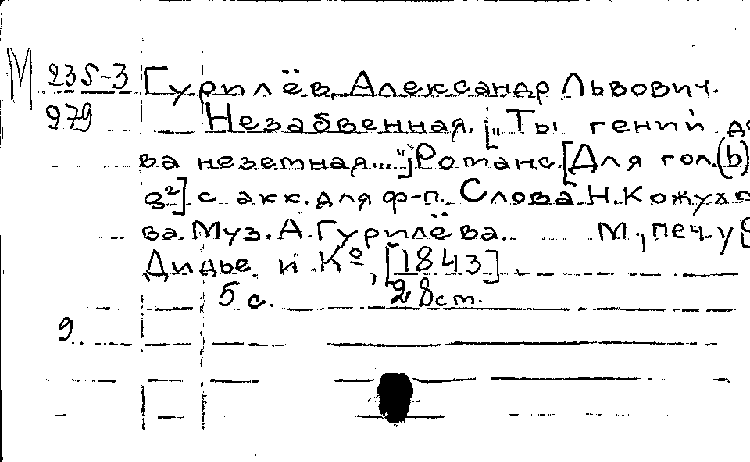 М 235-3 Гурилёв, Александр Львович.
979 Незабвенная. ["Ты гений д
ва неземная..."] Романс. [Для гол. (b)
g²] с акк. для ф-п. Слова Н. Кожухо
ва. Муз. А. Гурилёва. М., печ. у
Дидье и Кº, [1843]
5 с. 28 ст.
9.